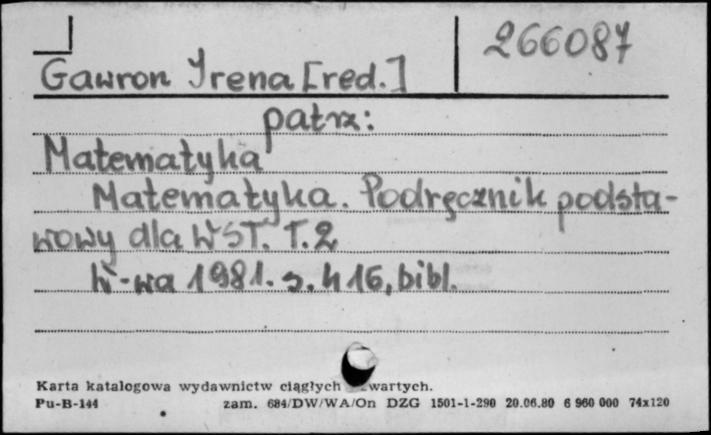 266087
Gawron Irena [red.]
patrz:
Matematyka
Matematyka. Podręcznik podsta-
wowy dla WST. T.2
W-wa 1981. s. 416, bibl.
Karta katalogowa wydawnictw ciągłych wartych.
Pu-B-144 zam. 684/DW/WA/On DZG 1501-1-290 20.06.80 6 960 000 74x120